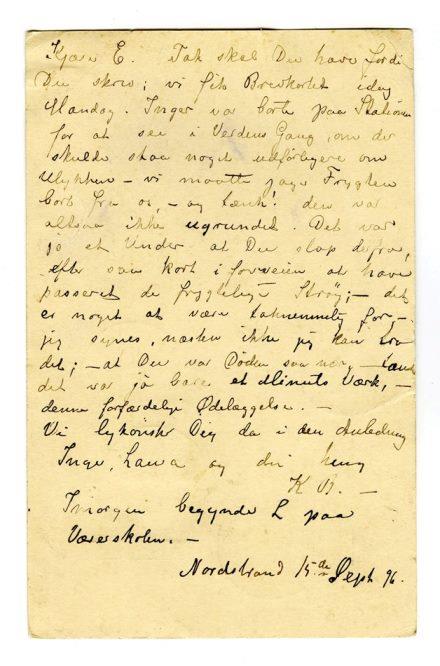 Kjære E. Tak skal Du have fordi
Du skrev; vi fik Brevkortet idag
Mandag. Inger var borte paa Stationen
for at see i Verdens Gang, om der
skulde staa noget udførligere om
Ulykken – vi maatte jage Frygten
bort fra os, – og tænk! den var
altsaa ikke ugrundet. Det var
jo et Under at Du slap derfra,
efter saa kort i forveien at have
passeret de frygtelige Strøg; – det
er noget at være taknemmelig for, –
jeg synes, næsten ikke jeg kan tro
det; – at Du var Døden saa nær, –
det var jo bare et Minuts Værk, –
denne forfærdelige Ødelæggelse. –
Vi lykønsker Dig da i den Anledning
Inger, Laura og din heng
K
Imorgen begynder L paa
–
Nordstrand 15de Sept 96.